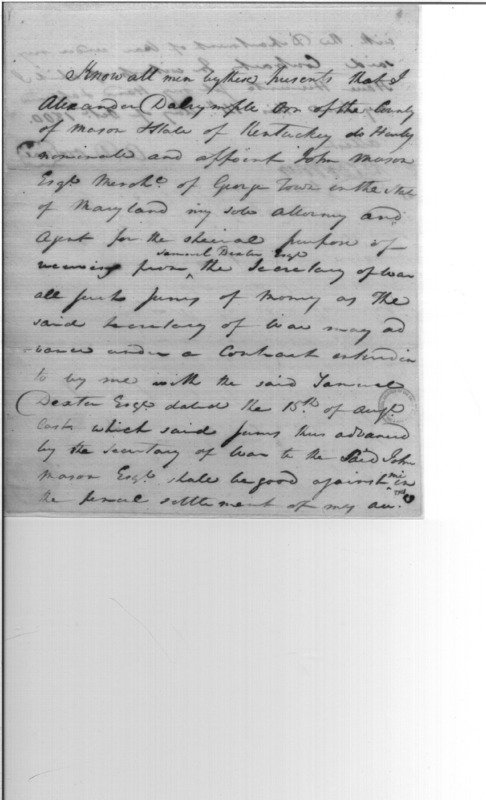 Know all men by these presents that I
Alexander Dalrymple Orr of the County
of mason State of Kentuckey do Hereby
nominate and appoint John Mason
Esqr. Mercht. of George Town in the State
of Maryland my sole attorney and
Agent for the special purpose of
Samuel Dexter Esqr
receiving from ^ the Secretary of War
all such sums of Money as the
said Secretary of War may ad
vance under a Contract entered in
to by me with the said Samuel
Dexter Esqr. dated the 15th of Augt
last which said sums thus advanced
by the Secretary of War to the Said John
Mason Esqr. shall be good against me in
the final settlement of my ac.